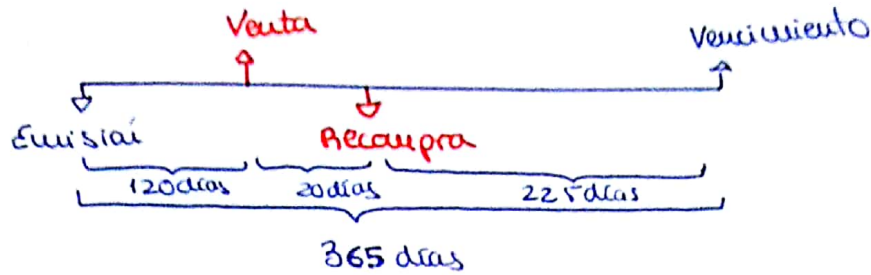 Venta
Vencimiento
Emisión
Recompra
120 días
20 días
225 días
365 días